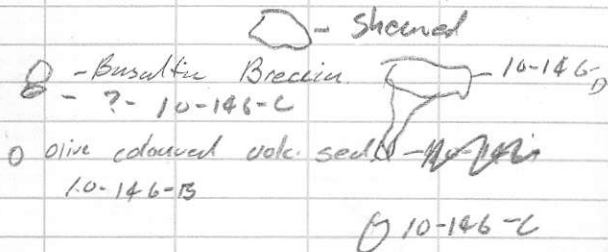 - Sheared
- Basaltic Breccia
- 10-146-D
- ? - 10-146-C
olive coloured volc. sed.
10-146-B
10-146-C